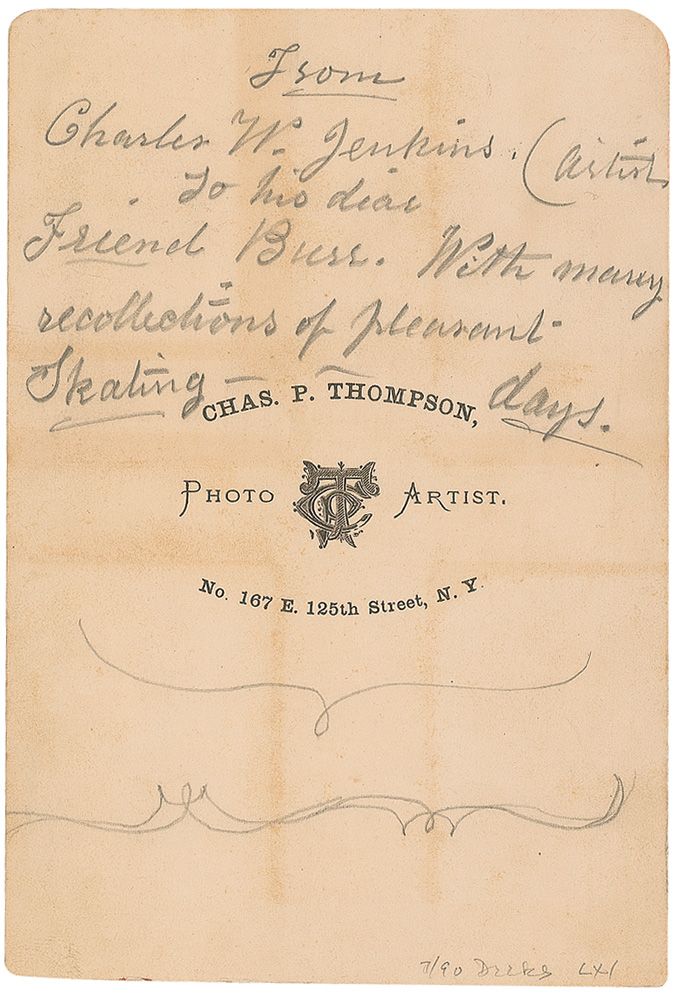 From
Charles W. Jenkins. (Artist
To his dear
Friend Burr. With many
recollections of pleasant
Skating — days.
CHAS. P. THOMPSON,
PHOTO ARTIST.
No. 167 E. 125th Street, N. Y.
7/90